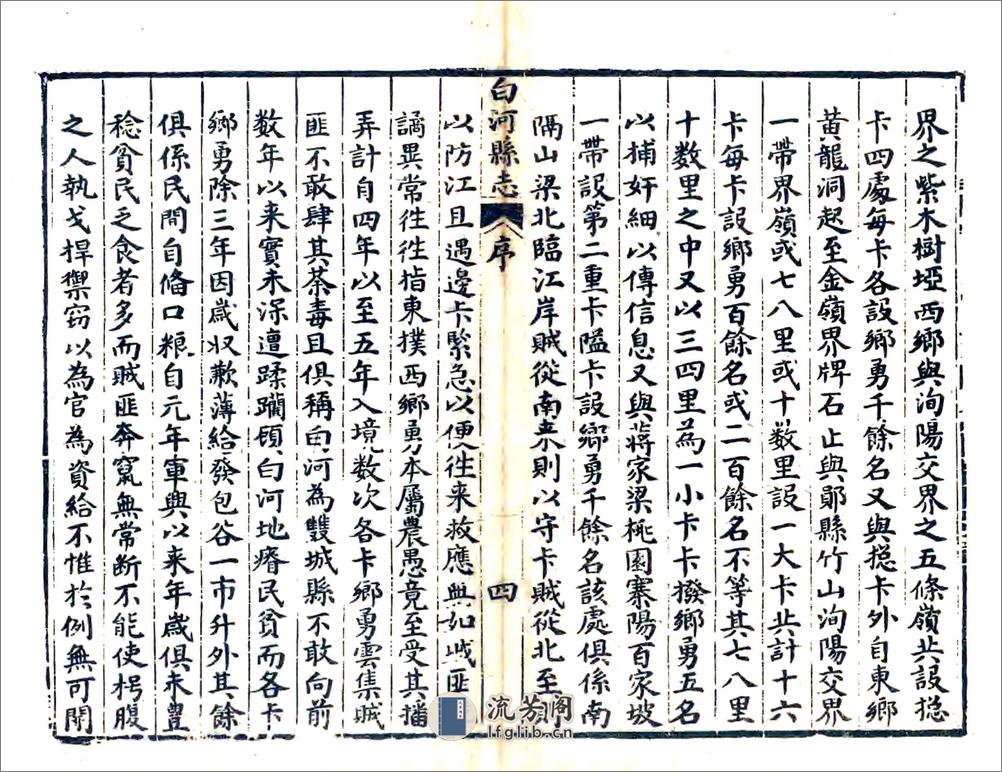 界之紫木樹埡西鄉與洵陽交界之五條嶺共設揔
卡四處每卡各設鄉勇千餘名又與揔卡外自東鄉
黃龍洞起至金嶺界牌石止與鄖縣竹山洵陽交界
一帶界嶺或七八里或十數里設一大卡共計十六
卡每卡設鄉勇百餘名或二百餘名不等其七八里
十數里之中又以三四里為一小卡卡撥鄉勇五名
以捕奸細以傳信息又與蔣家梁桃園寨陽百家坡
一帶設第二重卡隘卡設鄉勇千餘名該處俱係南
隔山梁北臨江岸賊從南来則以守卡賊從北至
白河縣志 序 四
以防江且遇邊卡緊急以便徃来救應無如賊匪
譎異常徃徃指東撲西鄉勇本屬農愚竟至受其播
弄計自四年以至五年入境數次各卡鄉勇雲集賊
匪不敢肆其荼毒且俱稱白河為雙城縣不敢向前
数年以来實未深遭蹂躪頋白河地瘠民貧而各卡
鄉勇除三年因歲収歉薄給發包谷一市升外其餘
俱係民間自俻口粮自元年軍興以来年歲俱未豊
稔貧民乏食者多而賊匪奔竄無常断不能使枵腹
之人執戈捍禦窃以為官為資給不惟於例無可開
流芳阁
lfglib.cn